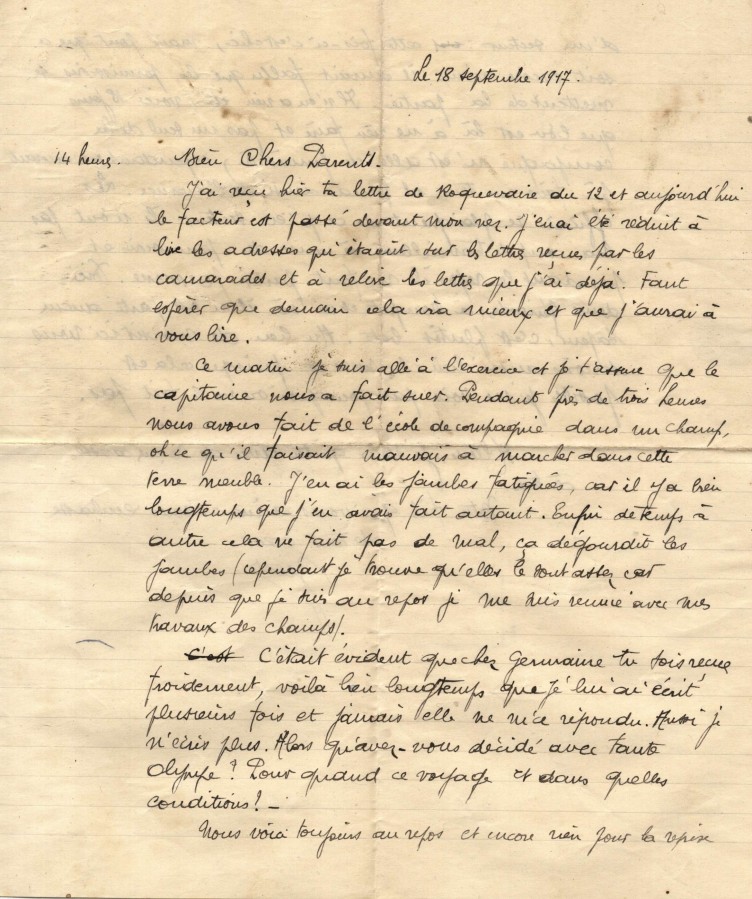 Le 18 septembre 1917.
14 heures. Bien Chers Parents.
J'ai reçu hier ta lettre de Roquevaire du 12 et aujourd'hui
le facteur est passé devant mon nez. J'en ai été réduit à
lire les adresses qui étaient sur les lettres reçues par les
camarades et à relire les lettres que j'ai déjà. Faut
espérer que demain cela ira mieux et que j'aurai à
vous lire.
Ce matin je suis allé à l'exercice et je t'assure que le
capitaine nous a fait suer. Pendant près de trois heures
nous avons fait de l'école de compagnie dans un champ,
oh ce qu'il faisait mauvais à marcher dans cette
terre meuble. J'en ai les jambes fatiguées, car il y a bien
longtemps que j'en avais fait autant. Enfin de temps à
autre cela ne fait pas de mal, ça dégourdit les
jambes (cependant je trouve qu'elles le sont assez car
depuis que je suis au repos je me suis remué avec mes
travaux des champs).
c'est C'était évident que chez Germaine tu sois reçue
froidement, voilà bien longtemps que je lui ai écrit
plusieurs fois et jamais elle ne m'a répondu. Aussi je
n'écris plus. Alors qu'avez-vous décidé avec tante
Olympe ? Pour quand ce voyage et dans quelles
conditions ? —
Nous voici toujours au repos et encore rien pour la reprise